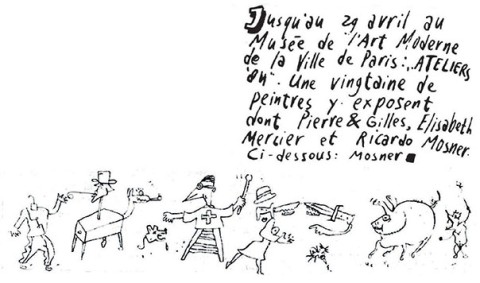 Jusqu'au 29 avril au
Musée de l'Art Moderne
de la Ville de Paris: ATELIERS
"84". Une vingtaine de
peintres y exposent
dont Pierre & Gilles, Elisabeth
Mercier et Ricardo Mosner.
Ci-dessous: Mosner ■